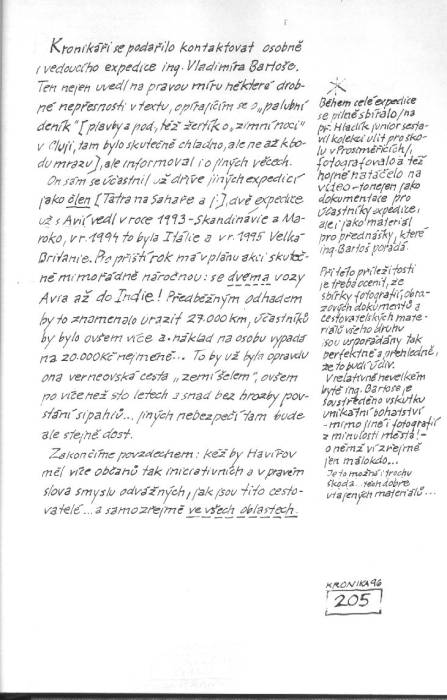 Kronikáři se podařilo kontaktovat osobně
i vedoucího expedice ing. Vladimíra Bartoše.
Ten nejen uvedl na pravou míru některé drob-
né nepřesnosti v textu, opírajícím se o „palubní
deník" [plavby a pod, též žertík o „zimní noci"
v Cluji, tam bylo skutečně chladno, ale ne až k bo-
du mrazu], ale informoval i o jiných věcech.
On sám se účastnil už dříve jiných expedicí
jako člen [Tatra na Sahaře a j.], dvě expedice
už s Avií vedl v roce 1993 - Skandinávie a Ma-
roko, v r. 1994 to byla Itálie a v r. 1995 Velká
Británie. Pro příští rok má v plánu akci skuteč-
ně mimořádně náročnou: se dvěma vozy
Avia až do Indie! Předběžným odhadem
by to znamenalo urazit 27.000 km, účastníků
by bylo ovšem více a náklad na osobu vypadá
na 20.000 Kč nejméně... To by už byla opravdu
ona verneovská cesta „zemí šelem", ovšem
po více než sto letech a snad bez hrozby pov-
stání sipáhiů... jiných nebezpečí tam bude
ale stejně dost.
Zakončíme povzdechem: kéž by Havířov
měl více občanů tak iniciativních a v pravém
slova smyslu odvážných, jak jsou tito cesto-
vatelé... a samozřejmě ve všech oblastech.
Během celé expedice
se pilně sbíralo/na
př. Hladík junior sesta-
vil kolekci ulit pro ško-
lu v Prostměřicích/,
fotografovalo a též
hojně natáčelo na
video - to nejen jako
dokumentace pro
účastníky expedice,
ale i jako materiál
pro přednášky, které
ing. Bartoš pořádá.
Při této příležitosti
je třeba ocenit, že
sbírky fotografií, obra-
zových dokumentů a
cestovatelských mate-
riálů všeho druhu
jsou uspořádány tak
perfektně a přehledně,
že to budí údiv.
V relativně nevelkém
bytě ing. Bartoše je
soustředěno vskutku
unikátní bohatství
- mimo jiné i fotografií
z minulosti města! -
o němž ví zřejmě
jen málokdo...
Je to možná i trochu
škoda... těch dobře
utajených materiálů...
KRONIKA 96
205